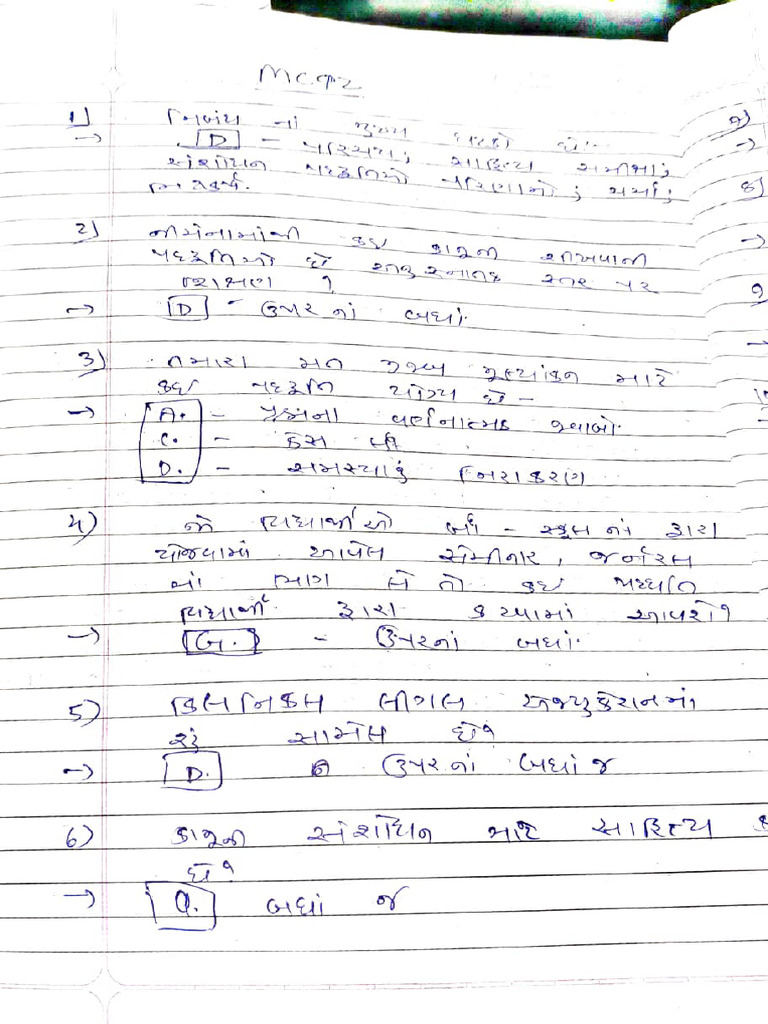 MCQ's
1) નિબંધ નાં મુખ્ય ઘટકો છે.
→ D - પરિચય; સાહિત્ય સમીક્ષા;
સંશોધન પદ્ધતિઓ પરિણામો; ચર્ચા;
નિષ્કર્ષ.
2) નીચેનામાંથી કઇ કાનૂની શીખવાની
પદ્ધતિઓ છે અનુસ્નાતક સ્તર પર
શિક્ષણ ?
→ D - ઉપર નાં બધાં.
3) તમારા મત મુજબ મૂલ્યાંકન માટે
કઇ પદ્ધતિ યોગ્ય છે -
→ A. - પ્રશ્નના વર્ણનાત્મક જવાબો.
C. - કેસ
D. - સમસ્યાનું નિરાકરણ
4) જો વિદ્યાર્થીઓ લૉ - સ્કૂલ નાં દ્વારા
યોજવામાં આવેલ સેમીનાર, જર્નલ
નાં ભાગ લે તો કઇ પધ્ધતિ
વિદ્યાર્થી દ્વારા કરવામાં આવશે?
→ - ઉપરનાં બધાં.
5) કિલનિકલ લીગલ એજ્યુકેશનમાં
શું સામેલ છે?
→ D. ઉપરનાં બધાં જ
6) કાનૂની સંશોધન માટે સાહિત્ય ક
છે?
→ બધાં જ
7)
→
8)
→
9
→
10